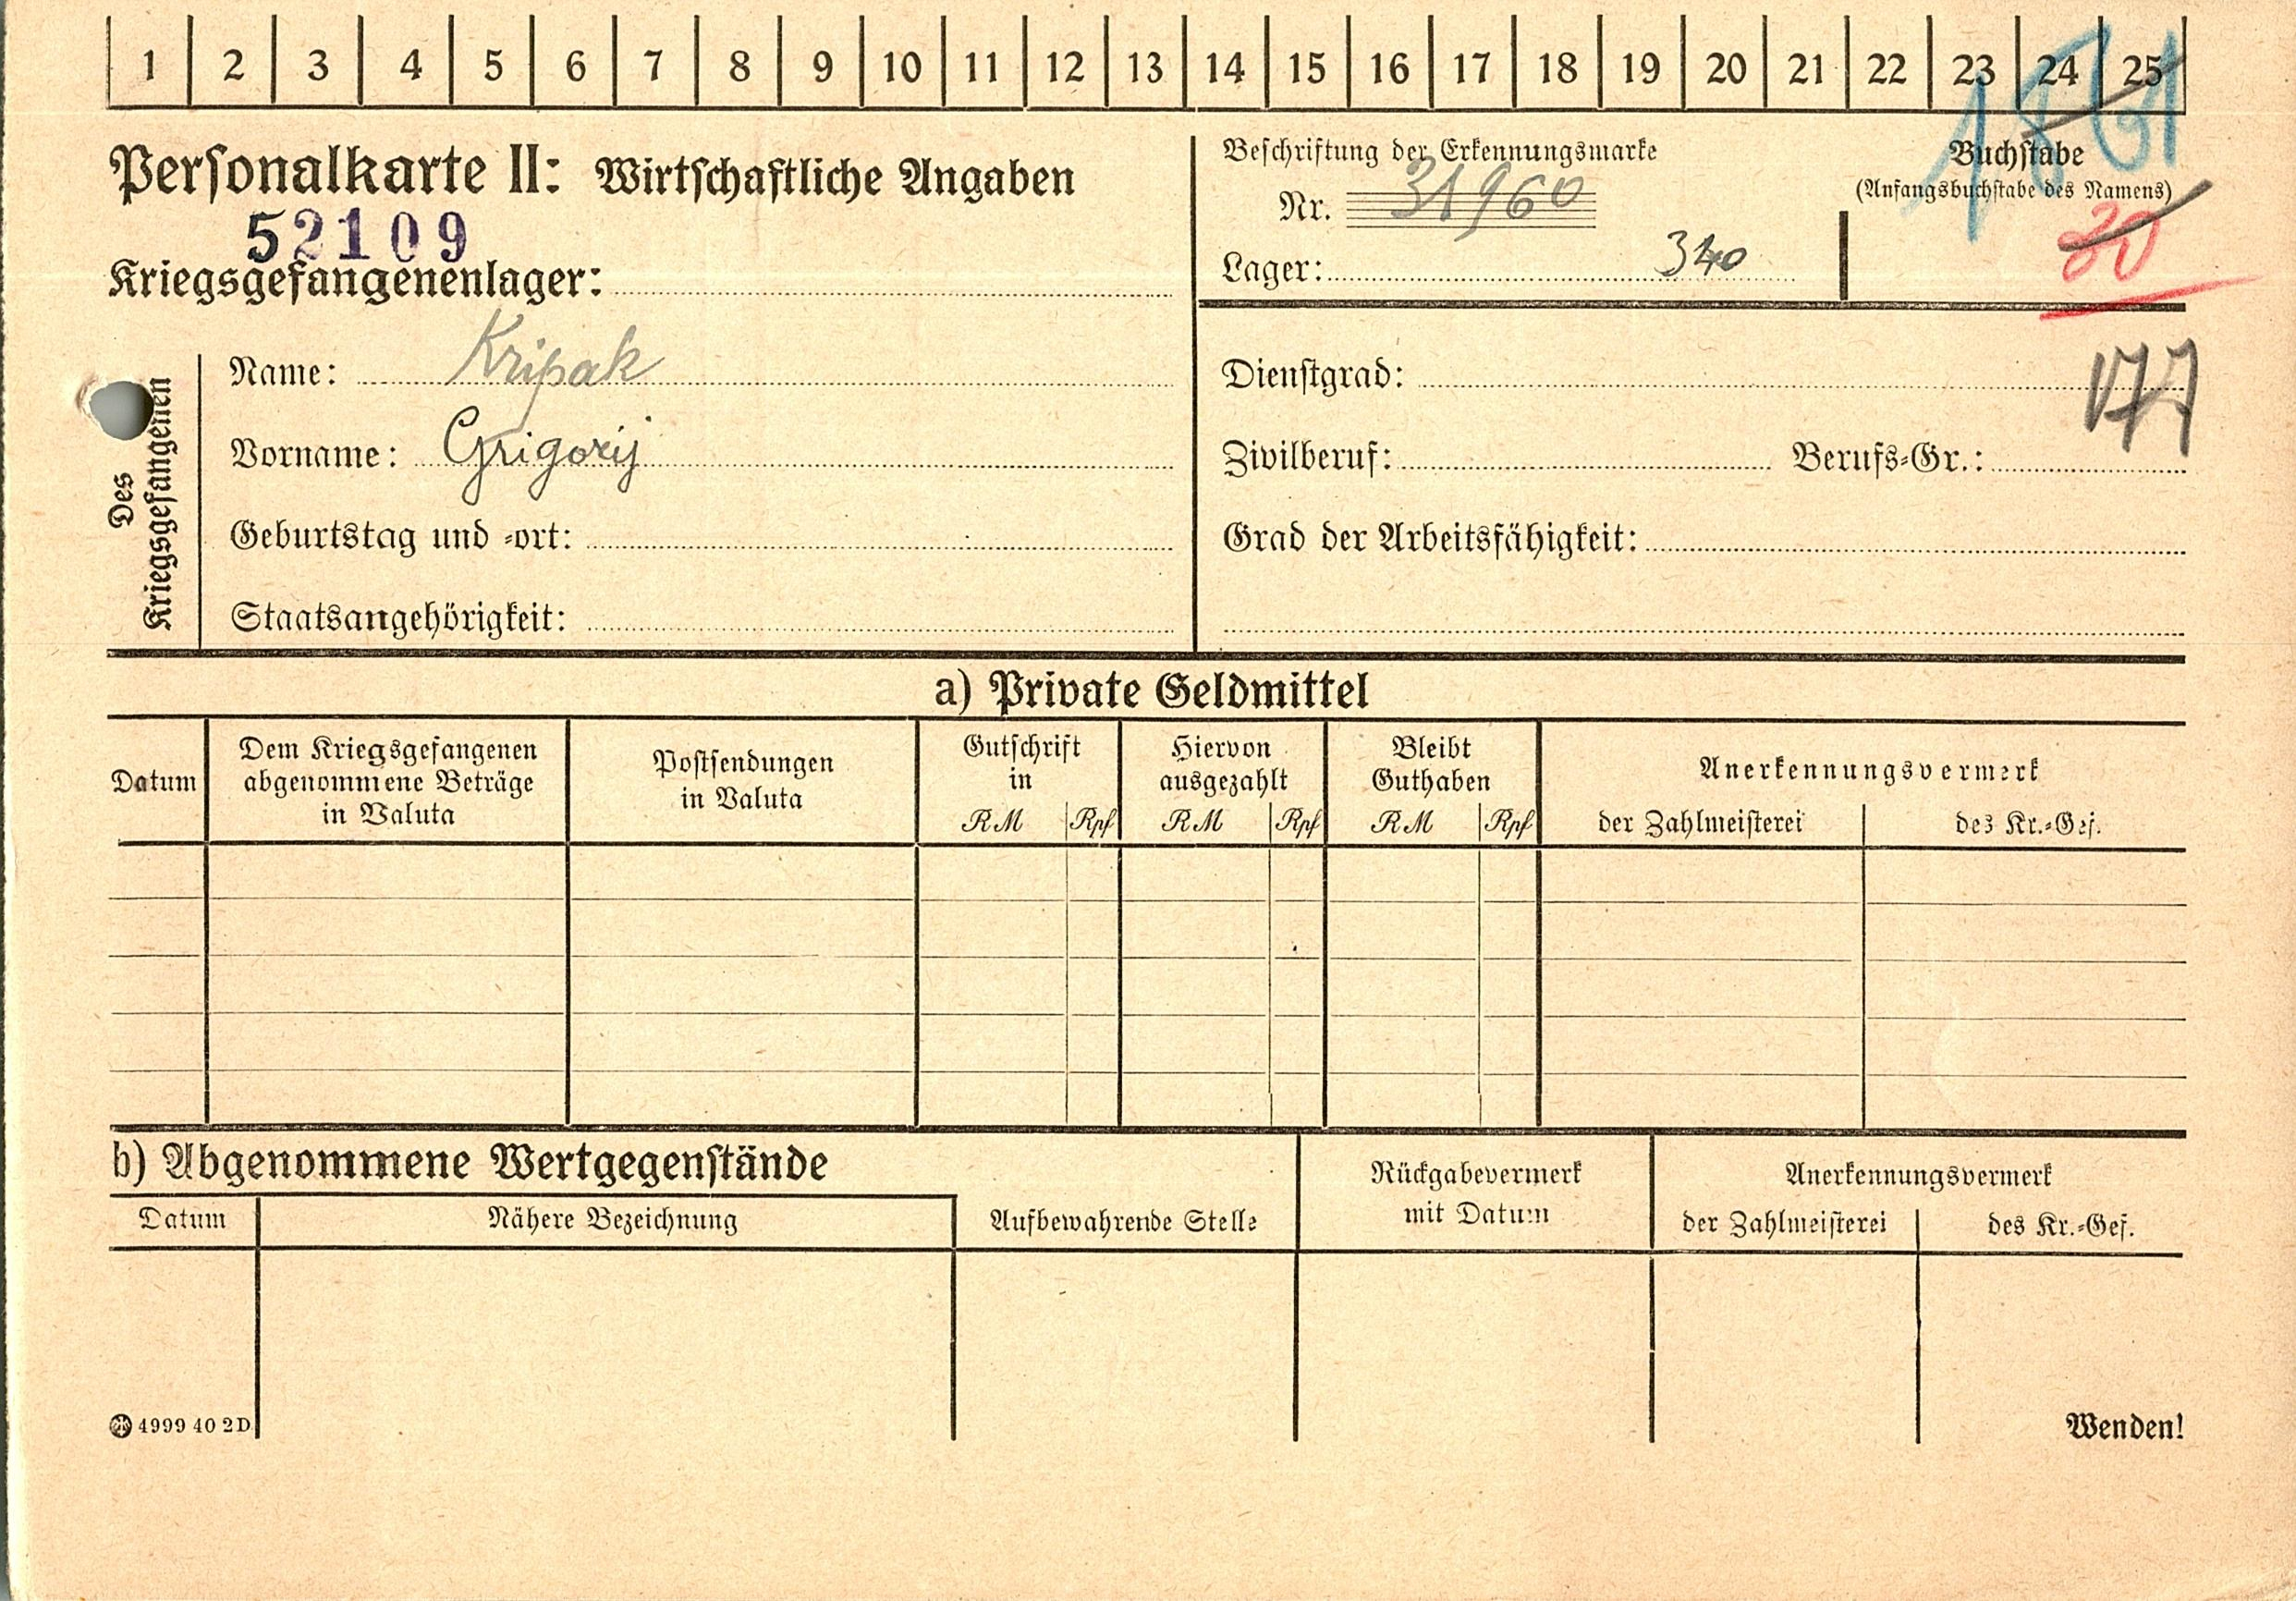 1 2 3 4 5 6 7 8 9 10 11 12 13 14 15 16 17 18 19 20 21 22 23 24 25
Personalkarte II: Wirtschaftliche Angaben
52109
Kriegsgefangenenlager:
Beschriftung der Erkennungsmarke
Nr. 31960
Lager: 340
Buchstabe
(Anfangsbuchstabe des Namens)
20
Des Kriegsgefangenen
Name: Kripak
Vorname: Grigorij
Geburtstag und -ort:
Staatsangehörigkeit:
Dienstgrad:
177
Zivilberuf: Berufs-Gr.:
Grad der Arbeitsfähigkeit:
a) Private Geldmittel
Datum
Dem Kriegsgefangenen
abgenommene Beträge
in Valuta
Postsendungen
in Valuta
Gutschrift
in
RM Rpf
Hiervon
ausgezahlt
RM Rpf
Bleibt
Guthaben
RM Rpf
Anerkennungsvermerk
der Zahlmeisterei des Kr.-Gef.
b) Abgenommene Wertgegenstände
Datum Nähere Bezeichnung
Aufbewahrende Stelle
Rückgabevermerk
mit Datum
Anerkennungsvermerk
der Zahlmeisterei des Kr.-Gef.
4999 40 2D
Wenden!